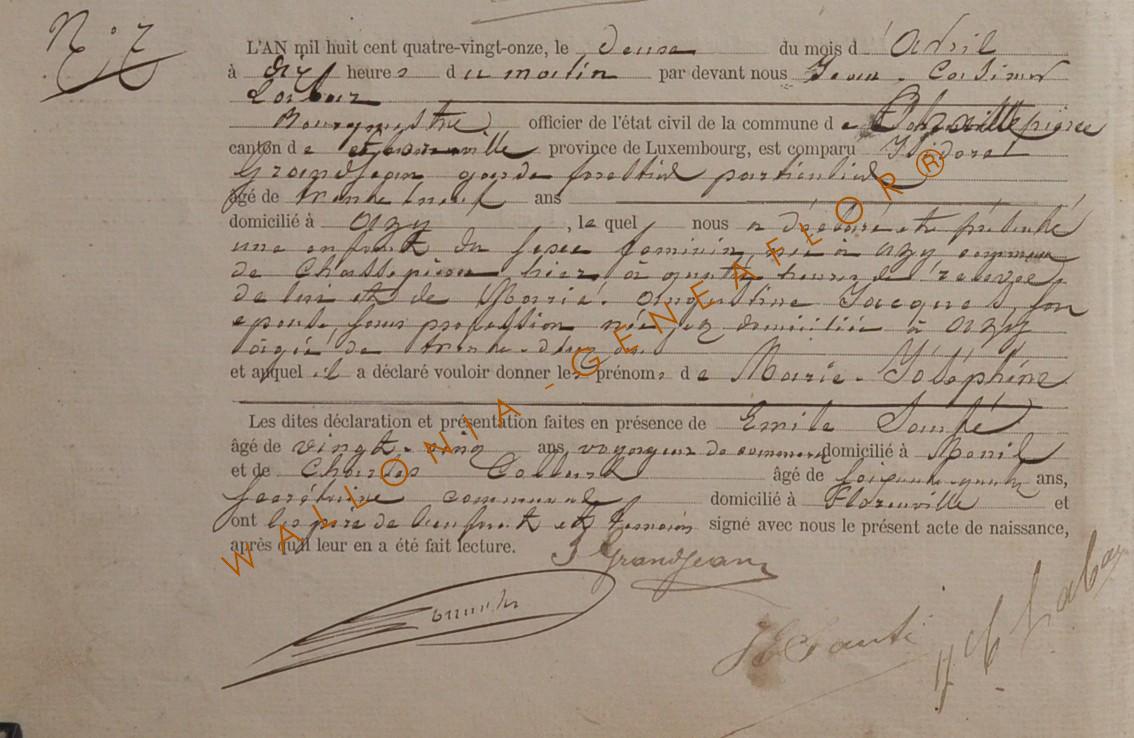 N° 7
L'AN mil huit cent quatre-vingt-onze, le douze du mois d'Avril
à dix heures du matin par devant nous Jean Casimir
Bourgmestre officier de l'état civil de la commune de Chassepierre
canton de Florenville province de Luxembourg, est comparu Isidore
Grandjean garde forestier particulier
âgé de trente neuf ans
domicilié à Azy, lequel nous a déclaré et présenté
une enfant du sexe féminin, née à Azy commune
de Chassepierre hier à quatre heures de relevée
de lui et de Marie. Augustine Jacques, son
épouse sans profession domiciliée à Azy
âgée de trente-deux ans
et auquel il a déclaré vouloir donner les prénoms de Marie-Joséphine
Les dites déclaration et présentation faites en présence de Emile
âgé de vingt-cinq ans, voyageur de commerce domicilié à
et de Charles Collard âgé de soixante ans,
Secrétaire communal domicilié à Florenville et
ont les père de l'enfant et témoins signé avec nous le présent acte de naissance,
après qu'il leur en a été fait lecture.
J Grandjean
WALLONIA-GENEAFLOR®